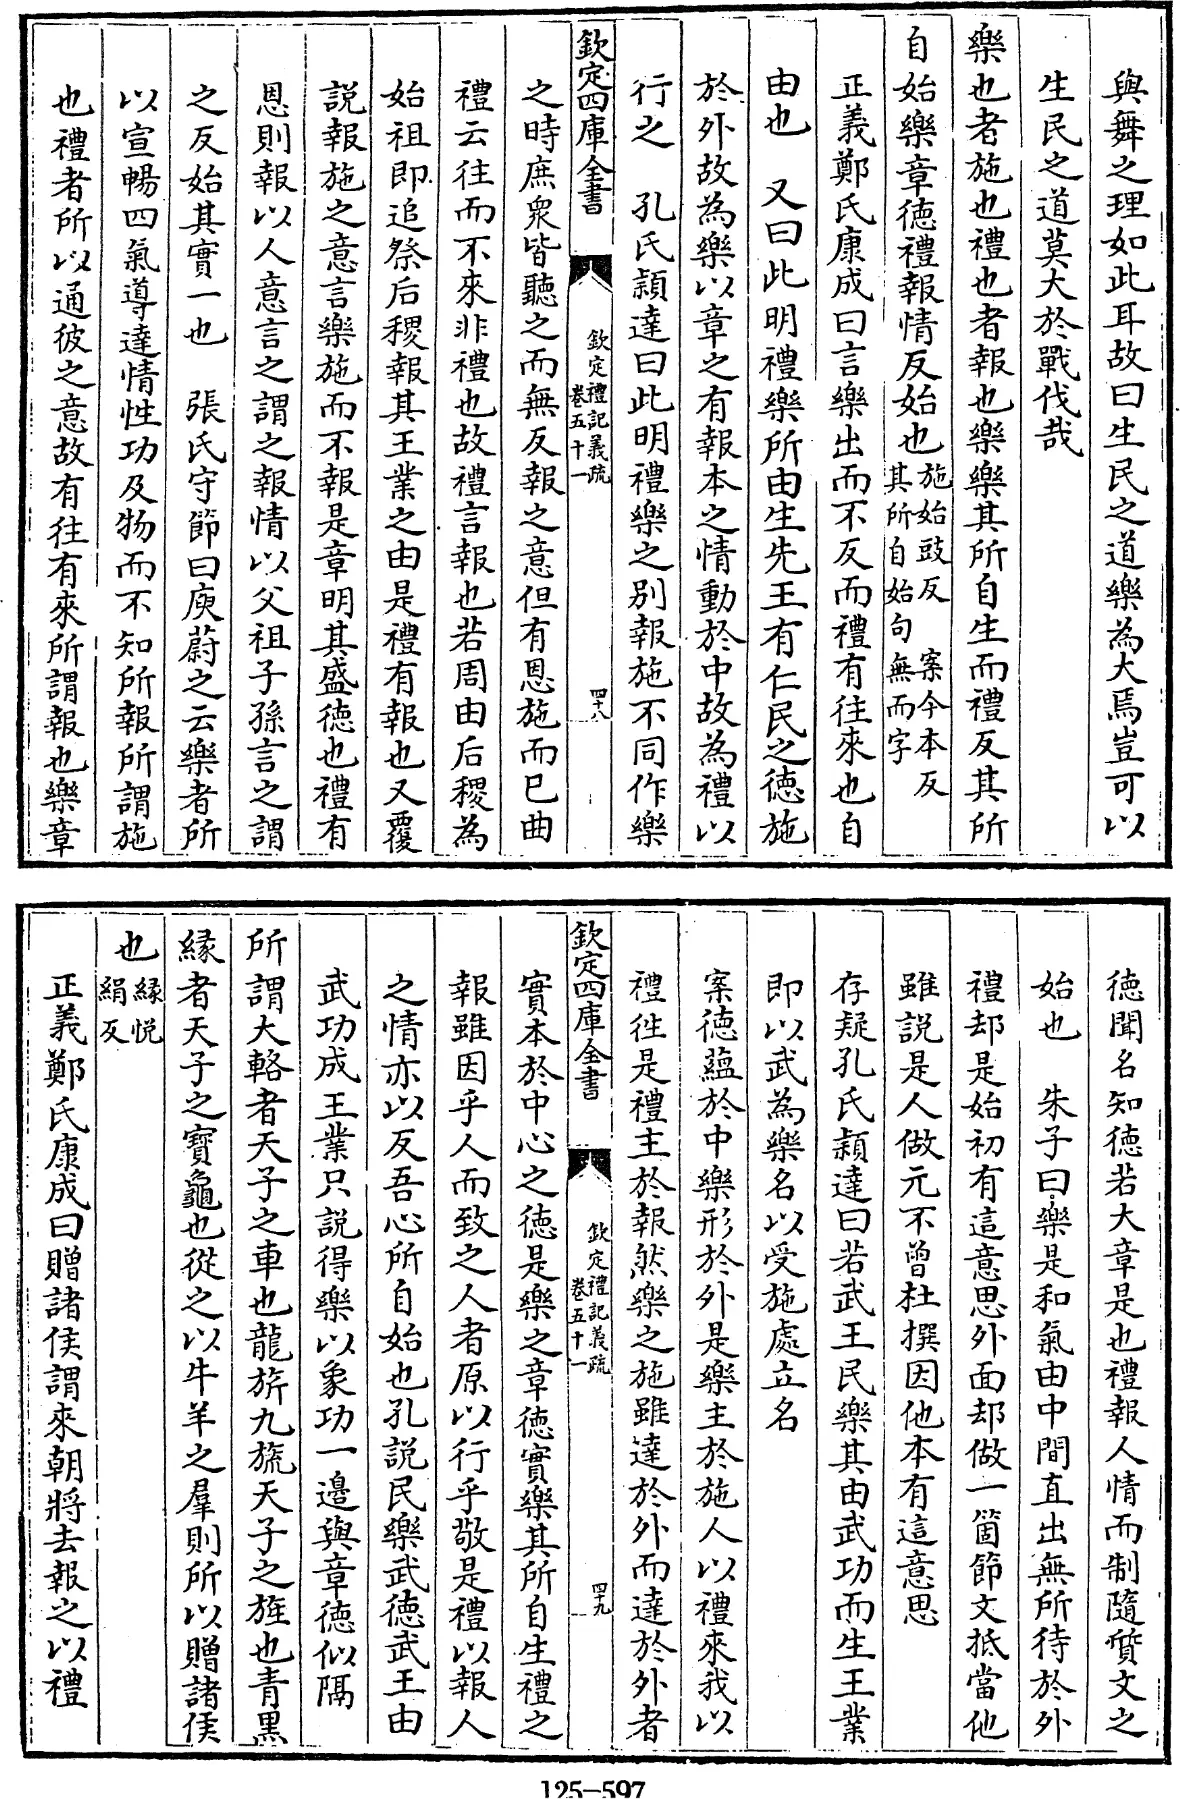 與舞之理如此耳故曰生民之道樂為大焉豈可以
生民之道莫大於戰伐哉
樂也者施也禮也者報也樂樂其所自生而禮反其所
自始樂章德禮報情反始也施始豉反　案今本反其所自始句無而字
正義鄭氏康成曰言樂出而不反而禮有往來也自
由也　又曰此明禮樂所由生先王有仁民之德施
於外故為樂以章之有報本之情動於中故為禮以
行之　孔氏穎達曰此明禮樂之別報施不同作樂
欽定四庫全書　欽定禮記義疏　卷五十一　四十八
之時庶衆皆聽之而無反報之意但有恩施而已曲
禮云往而不來非禮也故禮言報也若周由后稷為
始祖即追祭后稷報其王業之由是禮有報也又覆
説報施之意言樂施而不報是章明其盛德也禮有
恩則報以人意言之謂之報情以父祖子孫言之謂
之反始其實一也　張氏守節曰庾蔚之云樂者所
以宣暢四氣導達情性功及物而不知所報所謂施
也禮者所以通彼之意故有往有來所謂報也樂章
德聞名知德若大章是也禮報人情而制隨質文之
始也　朱子曰樂是和氣由中間直出無所待於外
禮却是始初有這意思外面却做一箇節文抵當他
雖説是人做元不曾杜撰因他本有這意思
存疑孔氏穎達曰若武王民樂其由武功而生王業
即以武為樂名以受施處立名
案德蘊於中樂形於外是樂主於施人以禮來我以
禮徃是禮主於報然樂之施雖達於外而達於外者
欽定四庫全書　欽定禮記義疏　卷五十一　四十九
實本於中心之德是樂之章德實樂其所自生禮之
報雖因乎人而致之人者原以行乎敬是禮以報人
之情亦以反吾心所自始也孔説民樂武德武王由
武功成王業只説得樂以象功一邉與章德似隔
所謂大輅者天子之車也龍旂九旒天子之旌也青黑
緣者天子之寶龜也從之以牛羊之羣則所以贈諸侯
也緣悅絹反
正義鄭氏康成曰贈諸侯謂來朝將去報之以禮
125-597